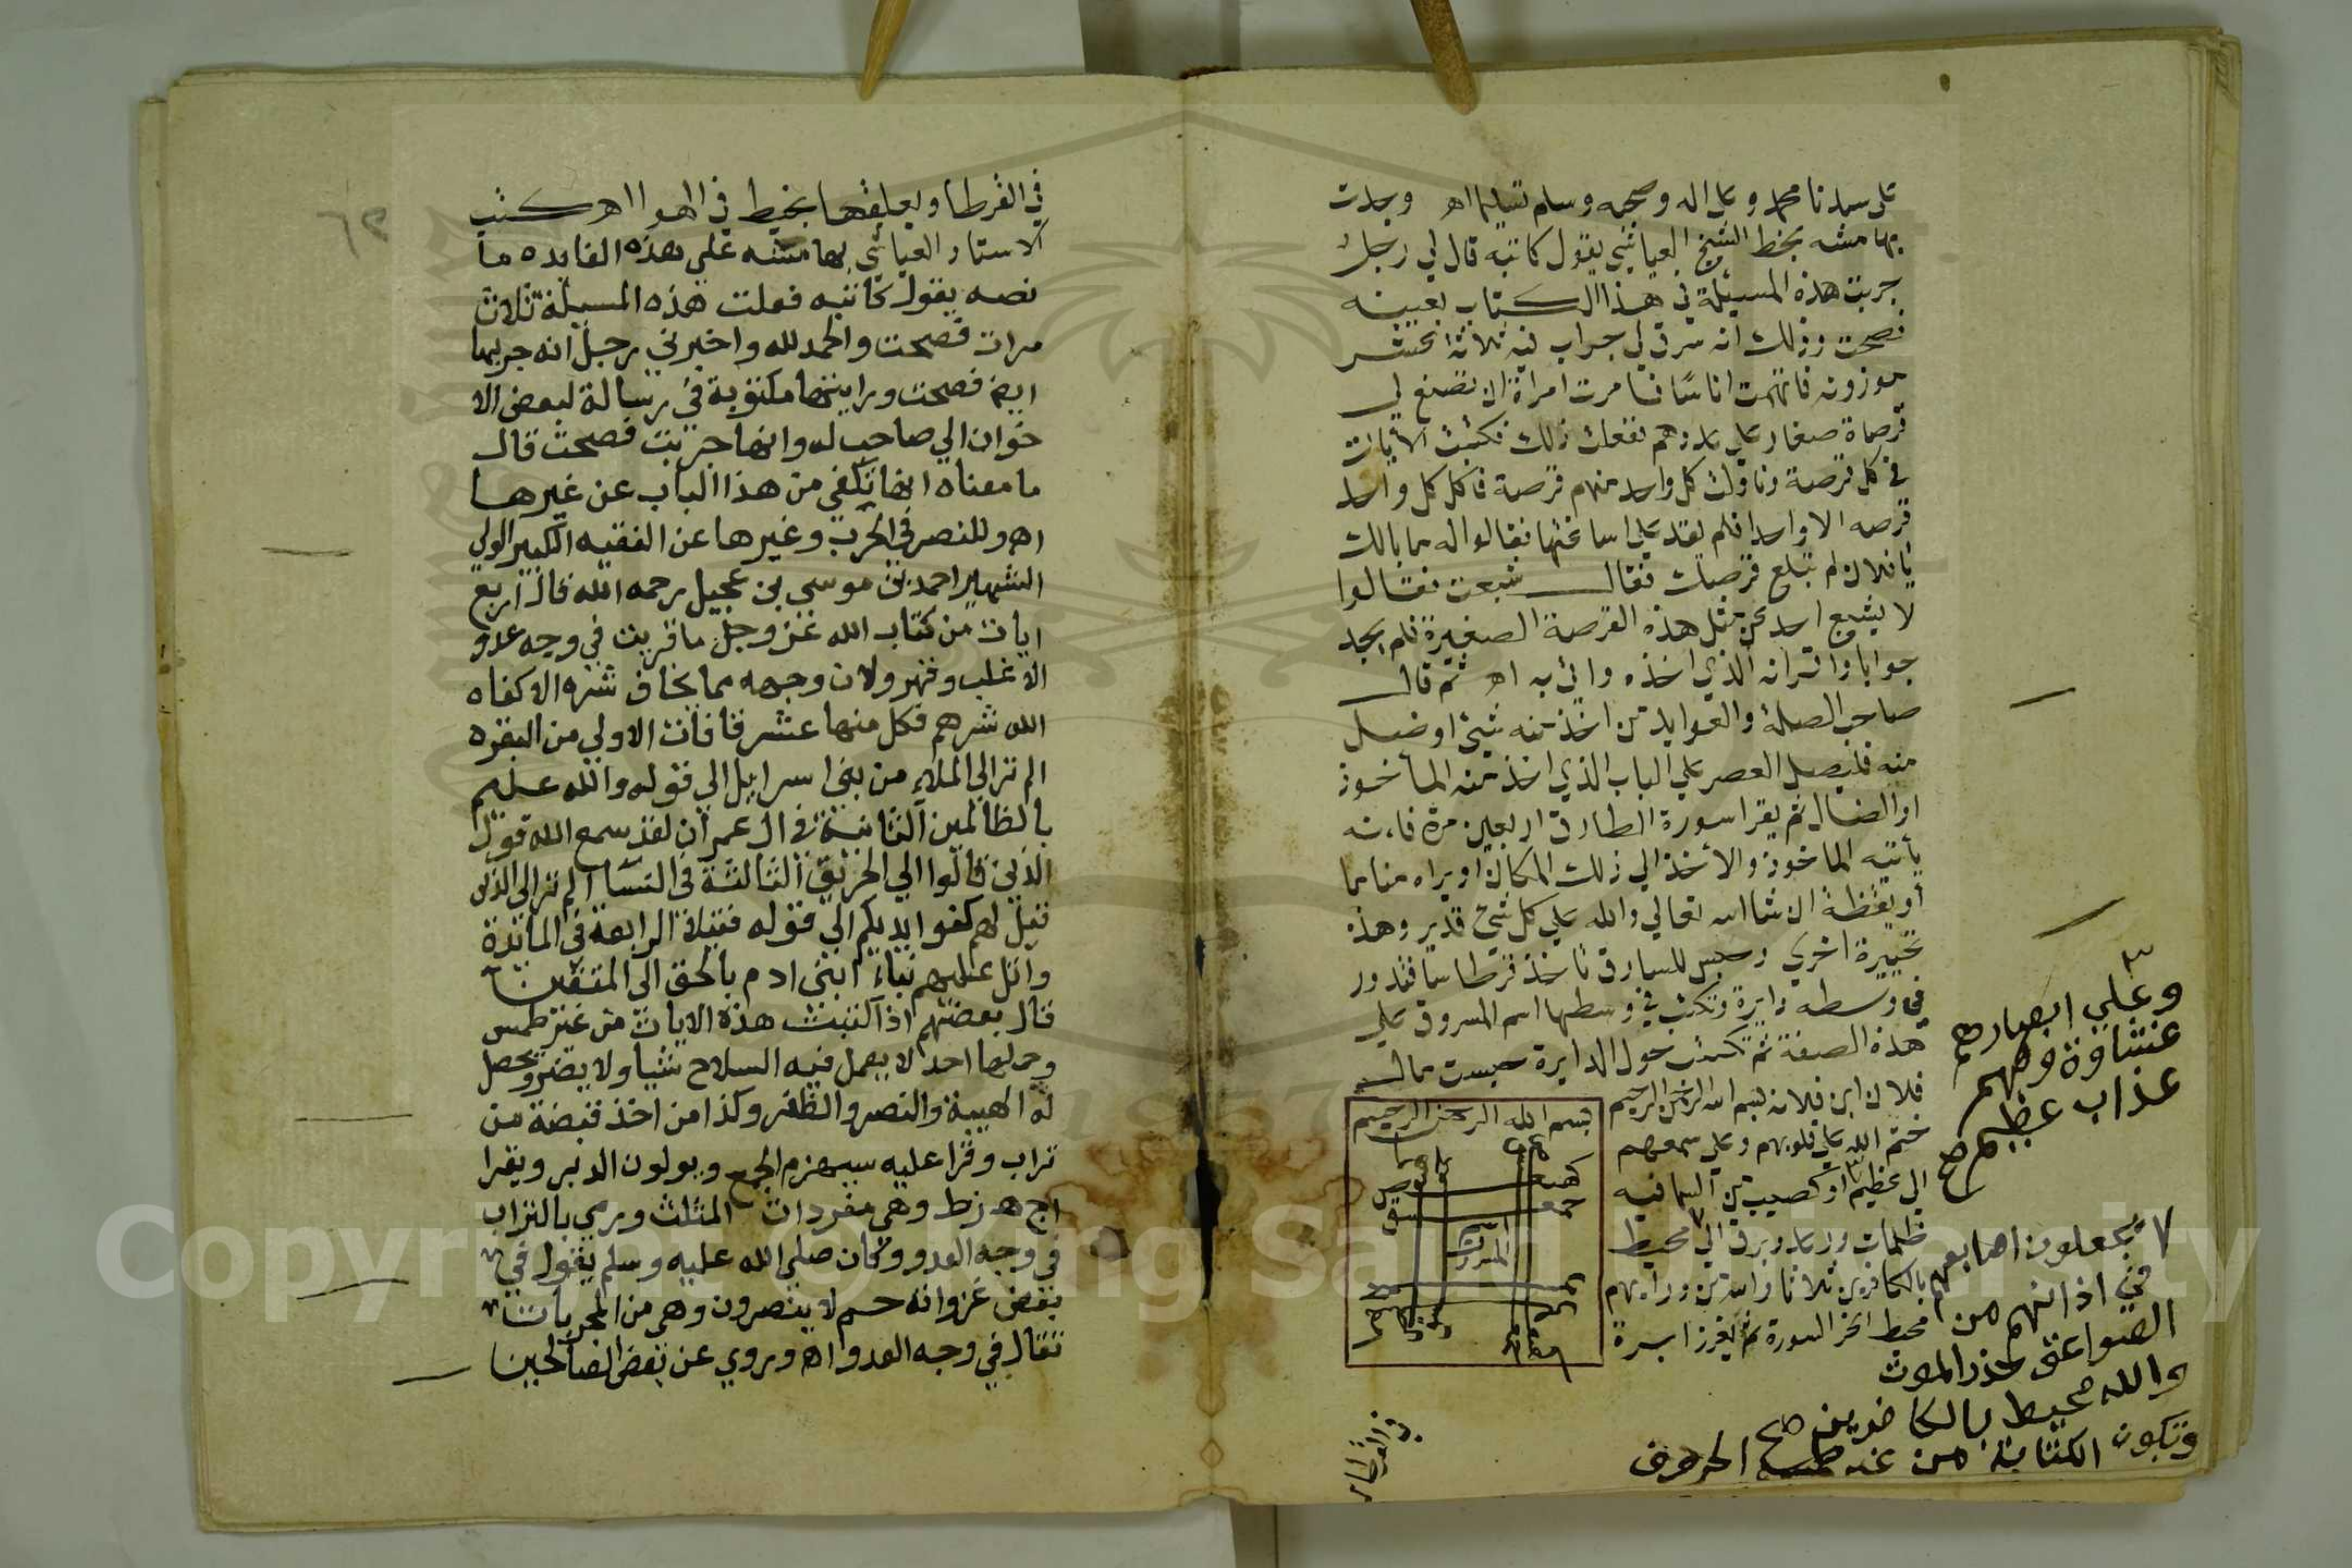 على سيدنا محمد وعلى اله وصحبه وسلم تسليما اهـ وجدت
بهامشه بخط الشيخ العياشي يقول كاتبه قال لي رجل
جربت هذه المسيئلة في هذا الكتاب بعينه
فصحت وذلك انه سرق لي جراب فيه ثلاثة عشر
موزونه فاتهمت اناسا فامرت امراة ان تصنع لي
قرصاة صغار على عددهم ففعلت ذلك فكتبت الأيات
في كل قرصة وناولت كل واحد منهم قرصة فاكل كل واحد
قرصه الا واحدا فلم يقدر على اساغتها فقالوا له ما بالك
يا فلان لم تبلع قرصك فقال شبعت فقالوا
لا يشبع احد من مثل هذه القرصة الصغيرة فلم يجد
جوابا واقر انه الذي اخذه واتى به اهـ ثم قال
صاحب الصلة والعوايد من اخذ منه شيئ او ضل
منه فليصل العصر على الباب الذي اخذ منه المأخوذ
او الضال ثم يقرا سورة الطارق اربعين مرة فانه
يأتيه الماخوذ والأخذ الي ذلك المكان او يراه مناما
أو يقظة ان شا الله تعالي والله على كل شئ قدير وهذه
اخري وحبس للسارق تاخذ قرطاسا فتدور
في وسطه دايرة وتكتب في وسطها اسم المسروق علي
هذه الصفة ثم تكتب حول الدايرة حبست مال
فلان ابن فلانه بسم الله الرحمن الرحيم
ختم الله على قلوبهم وعلى سمعهم
الي عظيم او كصيب من السما فيه
ظلمات ورعد وبرق الي محيط
بالكافرين ثلاثا والله من ورايهم
محيط اخر السورة ثم يغرز ابرة
بسم الله الرحمن الرحيم
اسم
المسروق
وعلي ابصارهم
غشاوة ولهم
عذاب عظيم صح
يجعلون اصابعهم
في اذانهم من
الصواعق حذر الموت
والله محيط بالكافرين صح
وتكون الكتابة من غير طمس الحروف
في القرطاس
٦٢
في القرطاس ويعلقها بخيط في الهوا اهـ كتب
الاستاد العياشي بهامشه علي هذه الفايده ما
نصه يقول كاتبه فعلت هذه المسيلة ثلاث
مرات فصحت والحمد لله واخبرني رجل انه جربها
ايضا فصحت ورايتها مكتوبة في رسالة لبعض الا
خوان الي صاحب له وانها جربت فصحت قال
ما معناه انها تكفي من هذا الباب عن غيرها
اهـ وللنصر في الحرب وغيرها عن الفقيه الكبير الولي
الشهير احمد بن موسي بن عجيل رحمه الله قال اربع
ايات من كتاب الله عز وجل ما قريت في وجه عدو
الا غلب وقهر ولا في وجهه مما يخاف شره الا كفاه
الله شرهم فكل منها عشر قافات الاولي من البقره
الم تر الي الملاء من بني اسرايل الي قوله والله عليم
بالظالمين الثانية في ال عمران لقد سمع الله قول
الذين قالوا الي الحريق الثالثة في النسا الم تر الي الذين
قيل لهم كفوا ايديكم الي قوله فتيلا الرابعة في المائدة
واتل عليهم نباء ابني ادم بالحق الى المتقين
قال بعضهم اذا كتبت هذه الايات من غير طمس
وحملها احد لا يعمل فيه السلاح شيأ ولا يضر ويحصل
له الهيبة والنصر والظفر وكذا من اخذ قبضة من
تراب وقرا عليه سيهزم الجمع ويولون الدبر ويقرا
اج هـ زط وهي مفردات المثلث ويرمي بالتراب
في وجه العدو وكان صلى الله عليه وسلم يقول في
بعض غزواته حم لا ينصرون وهي من المجربات
تقال في وجه العدو اهـ وروي عن بعض الصالحين